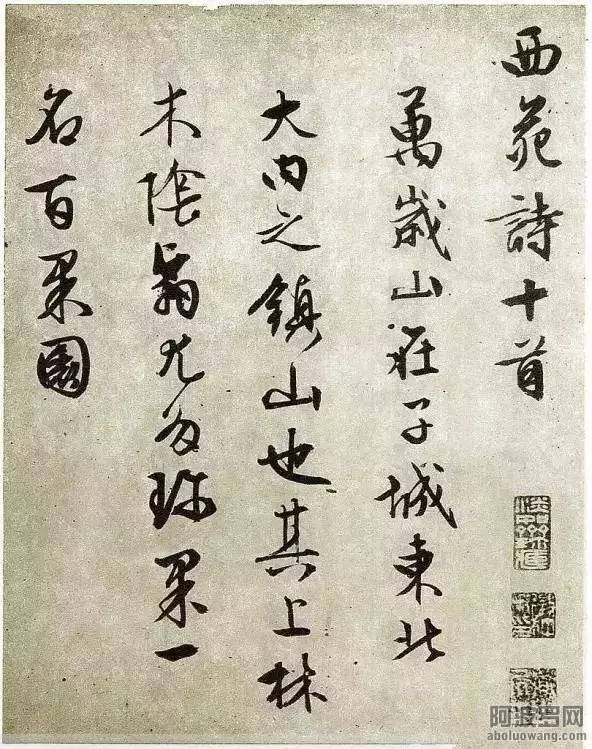 西苑詩十首
萬歲山在子城東北
大内之鎮山也其上林
木陰翳尤多珎果一
名百果園
阿波罗网
aboluowang.com